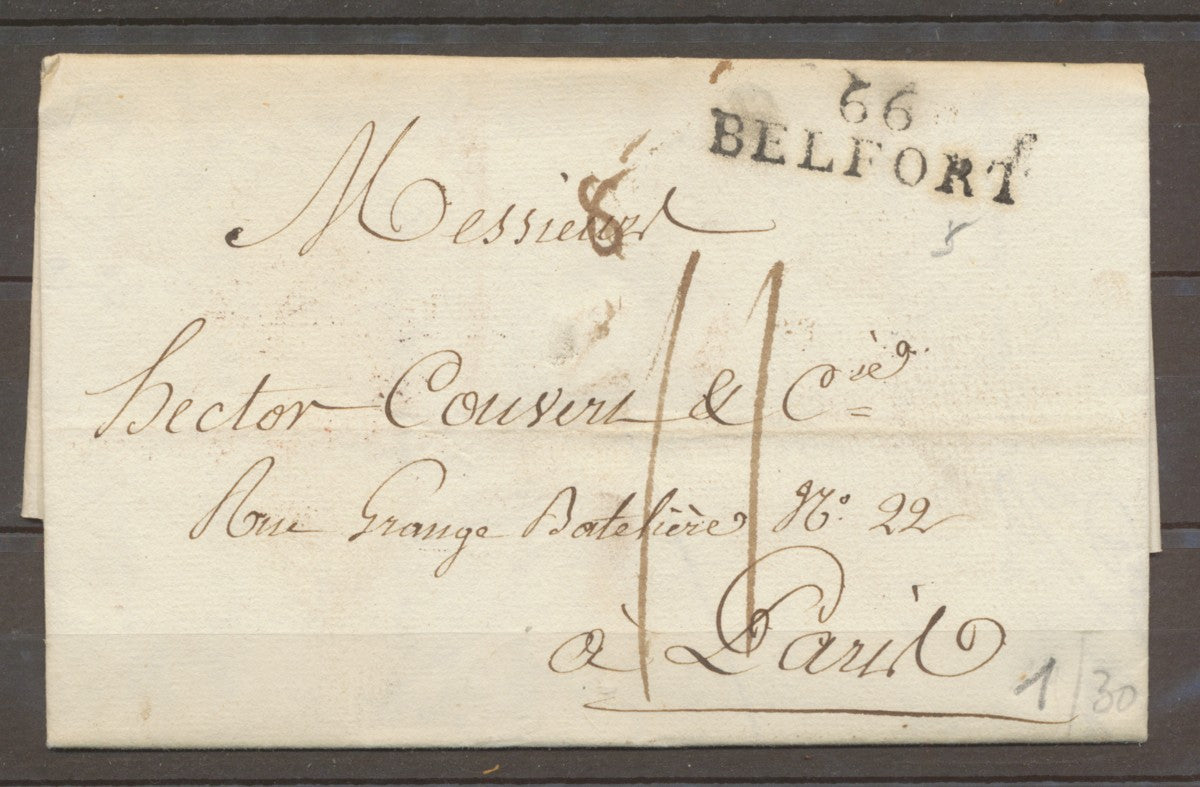 66
BELFORT
Messieurs
8
5
11
hector Couvert & Cie
Rue Grange Batelière No. 22
à Paris
1/30